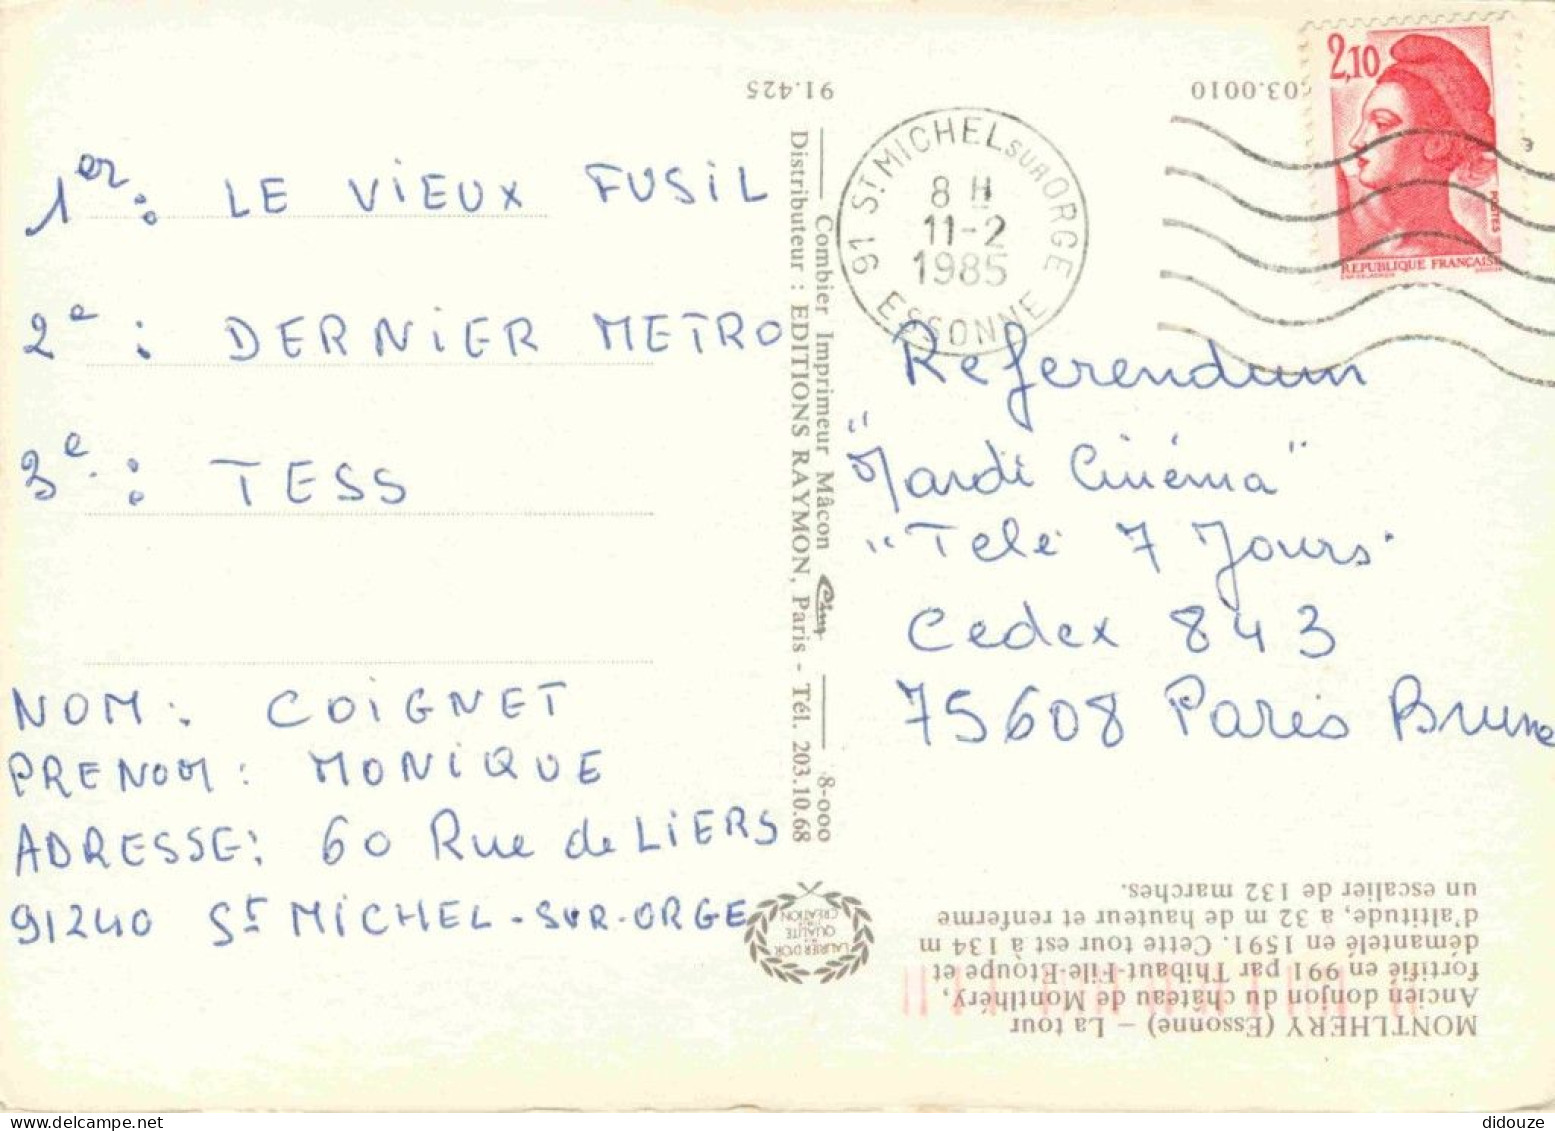 1er : LE VIEUX FUSIL
2e : DERNIER METRO
3e : TESS
NOM : COIGNET
PRENOM : MONIQUE
ADRESSE : 60 Rue de LIERS
91240 St MICHEL-SUR-ORGE
91.425
Combier Imprimeur Mâcon Cim 8-000
Distributeur : EDITIONS RAYMON, Paris - Tél. 203.10.68
LAURIER D'OR
QUALITE
CREATION
03.0010
91 ST MICHEL SUR ORGE
8 H
11-2
1985
ESSONNE
2,10
POSTES
REPUBLIQUE FRANÇAISE
Referendum
"Mardi Cinéma"
"Télé 7 Jours
Cedex 843
75608 Paris Brune
MONTLHERY (Essonne) – La tour
Ancien donjon du château de Montlhéry,
fortifié en 991 par Thibaut-File-Etoupe et
démantelé en 1591. Cette tour est à 134 m
d'altitude, a 32 m de hauteur et renferme
un escalier de 132 marches.
didouze